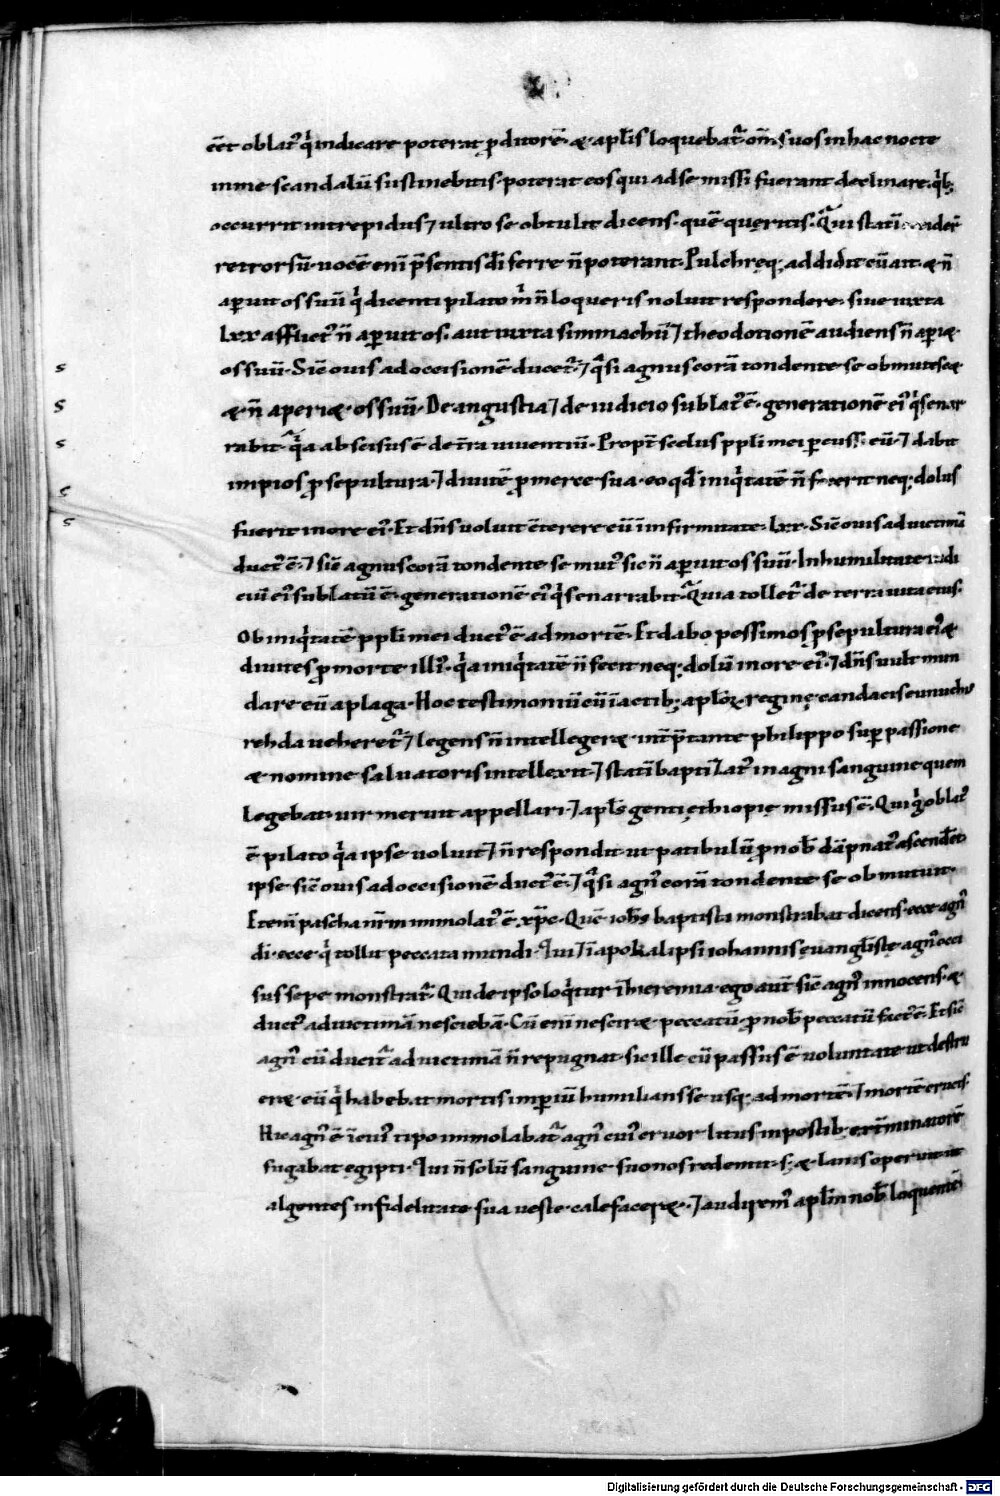 eēt oblat᾽ q̇ indicare poterat ꝓditorē. & apl̄is loquebat᷑. om̄s uos in hac nocte
in me scandalū sustinebitis. poterat eos qui ad se missi fuerant declinare. q̇b;
occurrit intrepidus ⁊ ultro se obtulit dicens. quē queritis. Qui statī
retrorsū. uocē enī p̄sentis dī ferre n̄ poterant. Pulchręq; addidit eū ait. & n̄
aꝑuit os suū q̇ dicenti pilato m̄ n̄ loqueris noluit respondere. siue iuxta
Lxx afflict᾽ n̄ aꝑuit os. aut iuxta simmachū ⁊ theodotionē audiens n̄ aperi&
os suū. Sic̄ ouis ad occisionē ducet᷑. ⁊ q̄si agnus corā tondente se obmutesc&
& n̄ aperi& os suū. De angustia ⁊ de iudicio sublat᾽ ē. generationē ei᾽ q̇s enar
rabit q̇a abscisus ē de tr̄a uiuentiū. Propt̄ scelus ppl̄i mei ꝑcussi eū. ⁊ dabit
impios ꝓ sepultura. ⁊ diuitē ꝓ morte sua. eo qd̄ iniq̇tatē n̄ fecerit neq; dolus
fuerit in ore ei᾽. Et dn̄s uoluit c̄terere eū ī infirmitate. Lxx. Sic̄ ouis ad uictimā
duct᾽ ē. ⁊ sic̄ agnus corā tondente se mut᾽ sic n̄ aꝑuit os suū. In humilitate iudi
ciū ei᾽ sublatū ē. generationē ei᾽ q̇s enarrabit. Quia tollet᷑ de terra uita eius.
Ob iniq̇tatē ppl̄i mei duct᾽ ē ad mortē. Et dabo pessimos ꝓ sepultura ei᾽ &
diuites ꝓ morte illi᾽. q̇a iniq̇tatē n̄ fecit neq; dolū in ore ei᾽. ⁊ dn̄s uult mun
dare eū a plaga. Hoc testimoniū cū ī actib; aplo℞. reginę candacis eunuchus
rehda ueheret᷑ ⁊ legens n̄ intelleger& int̄p̄tante philippo suꝑ passione
& nomine saluatoris intellexit. ⁊ statī baptizat᾽ in agni sanguine quem
Legebat. uir meruit appellari. ⁊ apl̄s genti ęthiopię missus ē. Qui g̊ oblat᾽
ē pilato q̇a ipse uoluit ⁊ n̄ respondit ut patibulū ꝓ nob̄ dāpnat᾽ ascenderet
ipse sic̄ ouis ad occisionē duct᾽ ē. ⁊ q̄si agn᾽ corā tondente se obmutuit.
Etenī pascha nr̄m immolat᾽ ē xp̄c. Quē ioh̄s baptista monstrabat dicens. ecce agn᾽
dī. ecce q̇ tollit peccata mundi. Qui ī apokalipsi iohannis euangl̄istę agn᾽ occi
sus sepe monstrat᷑. Qui de ipso loq̇tur ī hieremia. ego aut̄ sic̄ agn᾽ innocens. &
duct᾽ ad uictimā nesciebā. Cū enī nescir& peccatū. ꝓ nob̄ peccatū fact᾽ ē. Et sic̄
agn᾽ cū ducit᷑ ad uictimā n̄ repugnat. sic ille cū passus ē uoluntate ut destru
er& eū q̇ habebat mortis imꝑiū humilians se usq; ad mortē. ⁊ mortē crucis.
Hic agn᾽ ē ī cui᾽ tipo immolabat᷑ agn᾽ cui᾽ cruor litus in postib; exterminatorē
fugabat egipti. Qui n̄ solū sanguine suo nos redemit. s; & lanis operuit ut
algentes infidelitate sua ueste calefacer&. ⁊ audirem᾽ apl̄m nob̄ loquentē
s
s
s
s
s
Digitalisierung gefördert durch die Deutsche Forschungsgemeinschaft - DFG